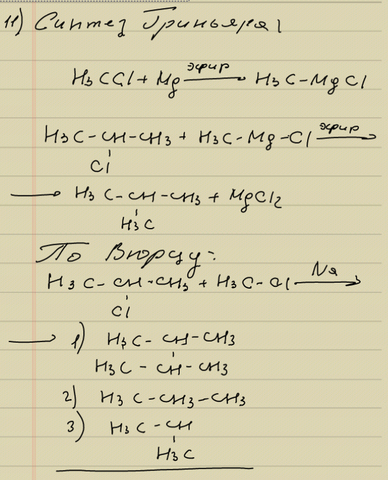 11) Синтез Гриньяра:
H3CCl + Mg эфир → H3C-MgCl
H3C-CH-CH3 + H3C-Mg-Cl эфир →
Cl
→ H3C-CH-CH3 + MgCl2
H3C
По Вюрцу:
H3C-CH-CH3 + H3C-Cl Na →
Cl
→ 1) H3C-CH-CH3
H3C-CH-CH3
2) H3C-CH3-CH3
3) H3C-CH
H3C